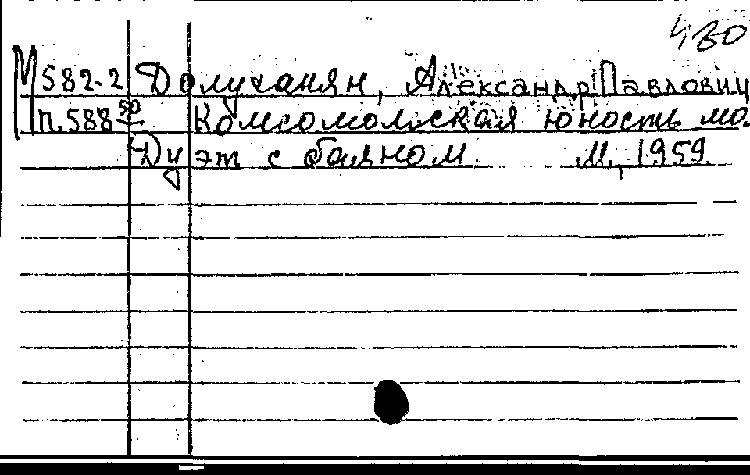 430
М 582-2 Долуханян, Александр Павлович
п.588 50 Комсомольская юность мо
Дуэт с баяном М., 1959